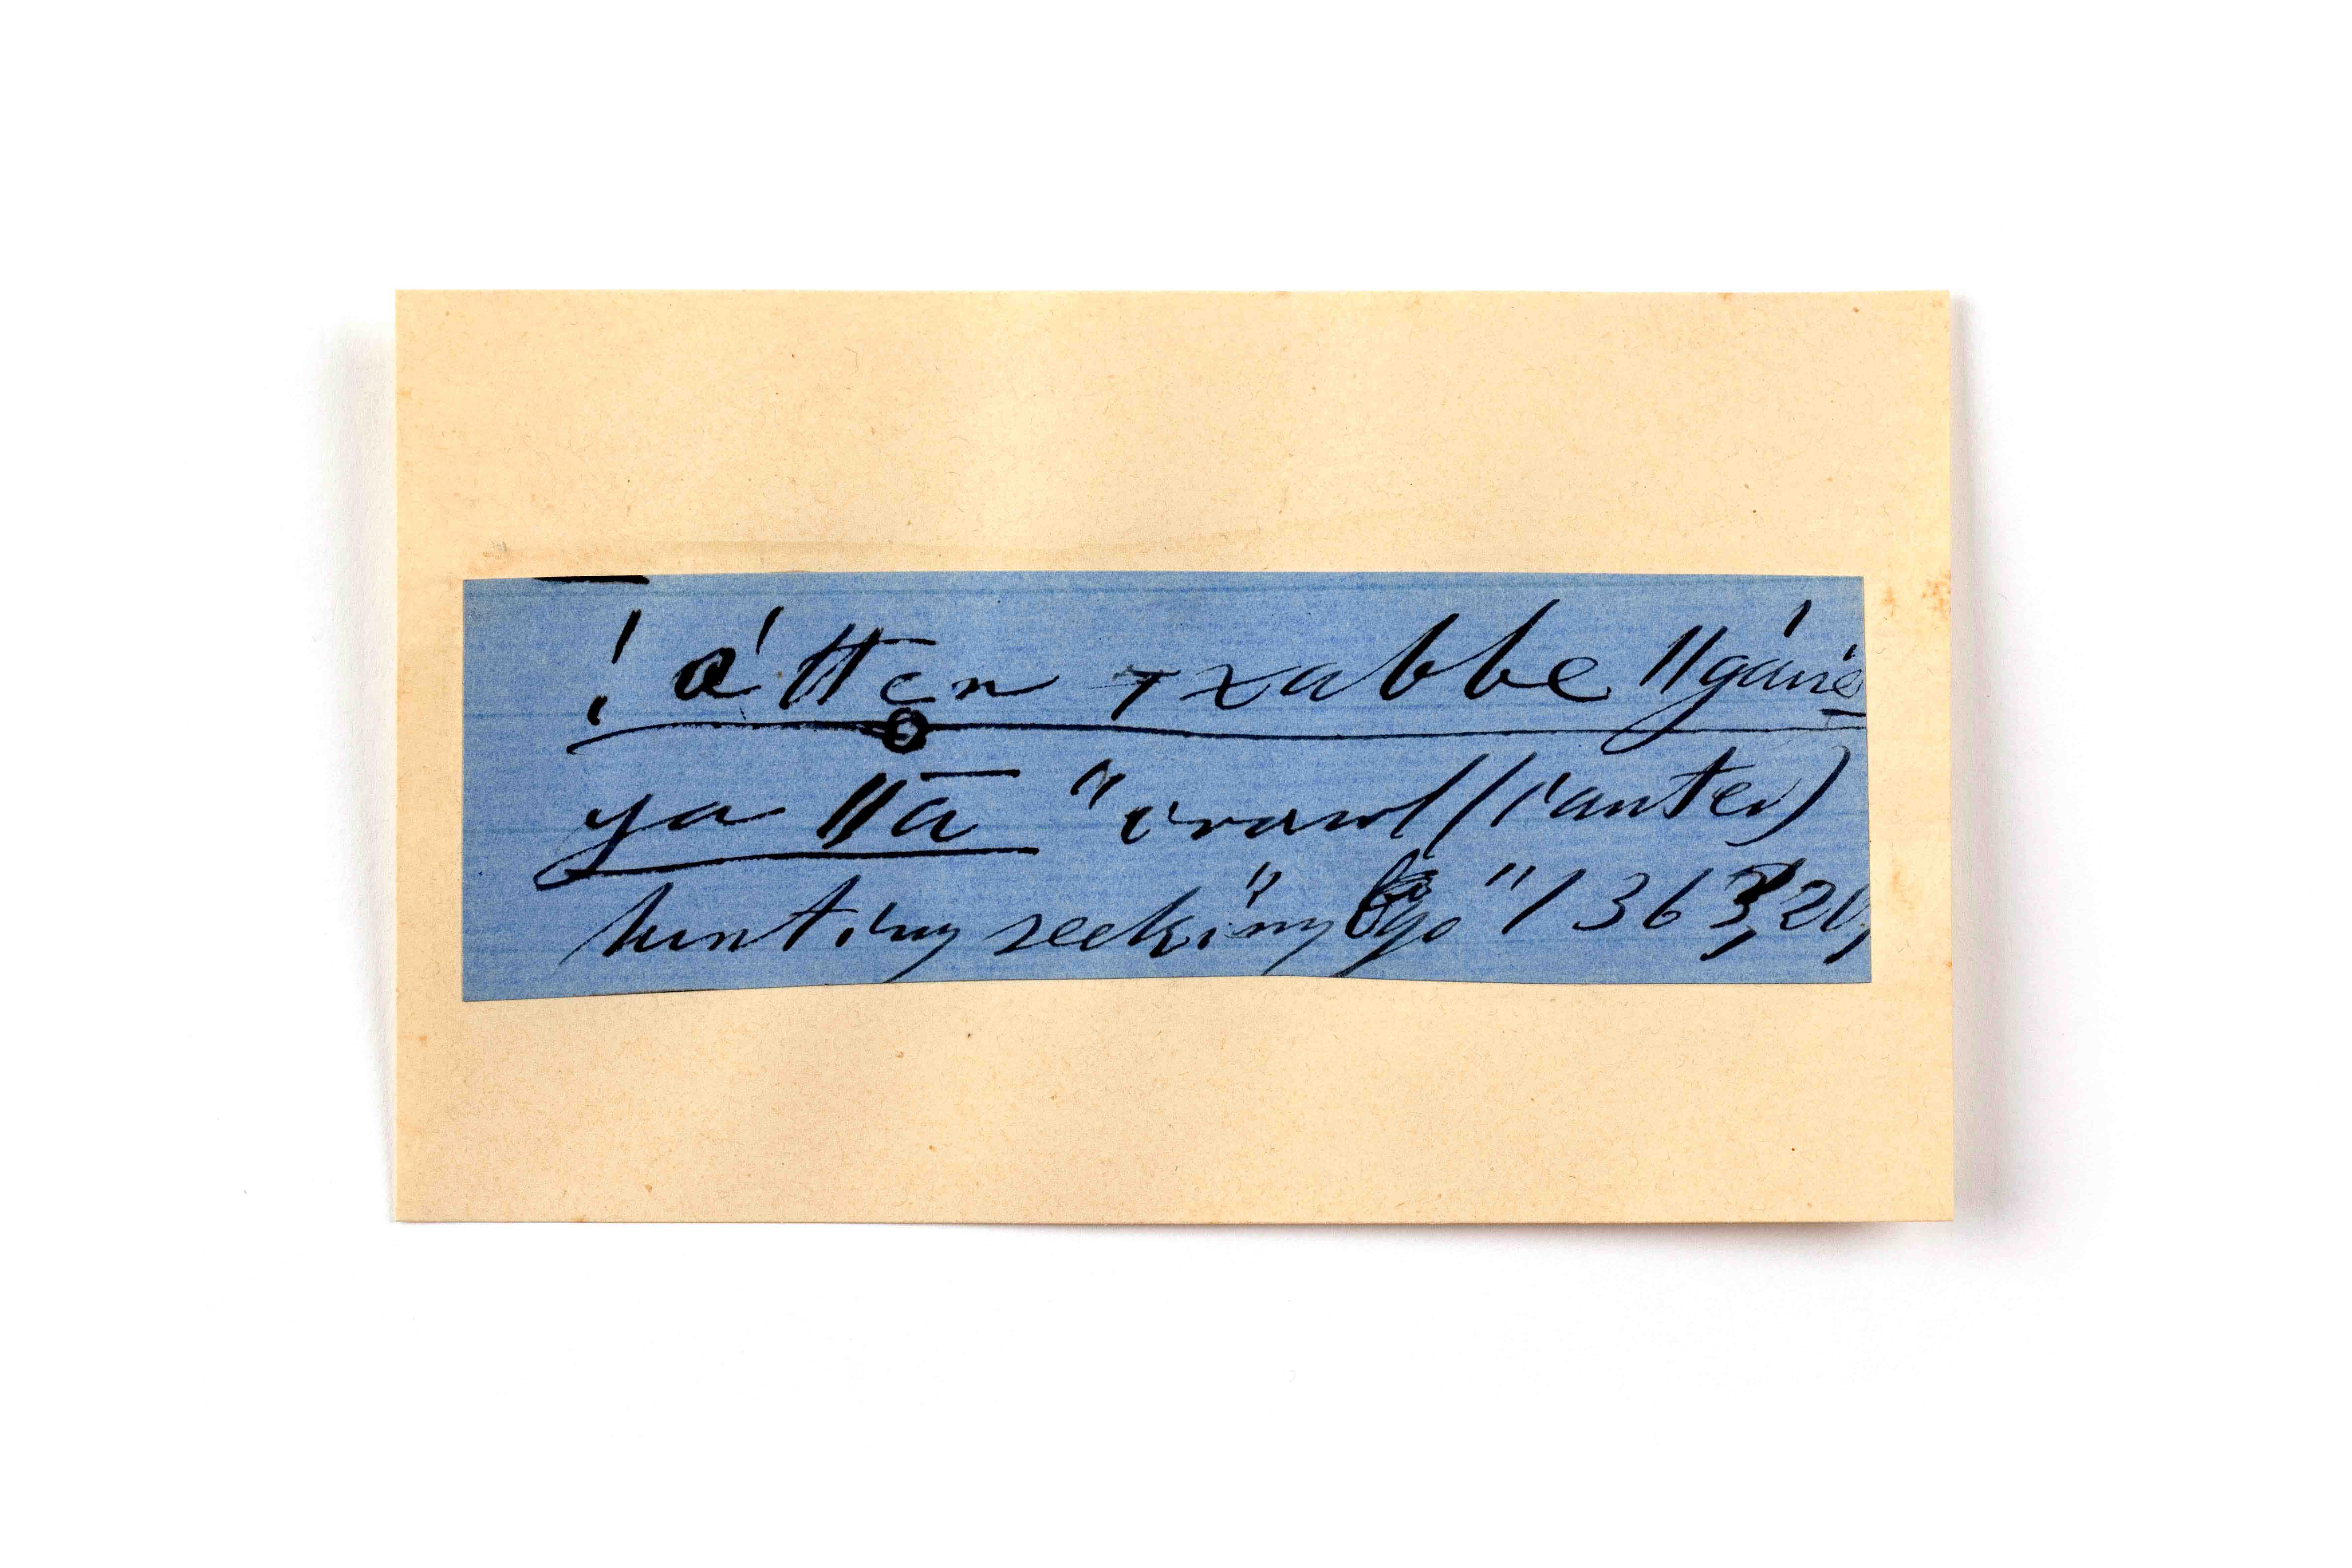 ! á tten + xabbe ‖gáuë
ya ‖ā "crawl (/anter)
hunting seeking" go "1363,20,